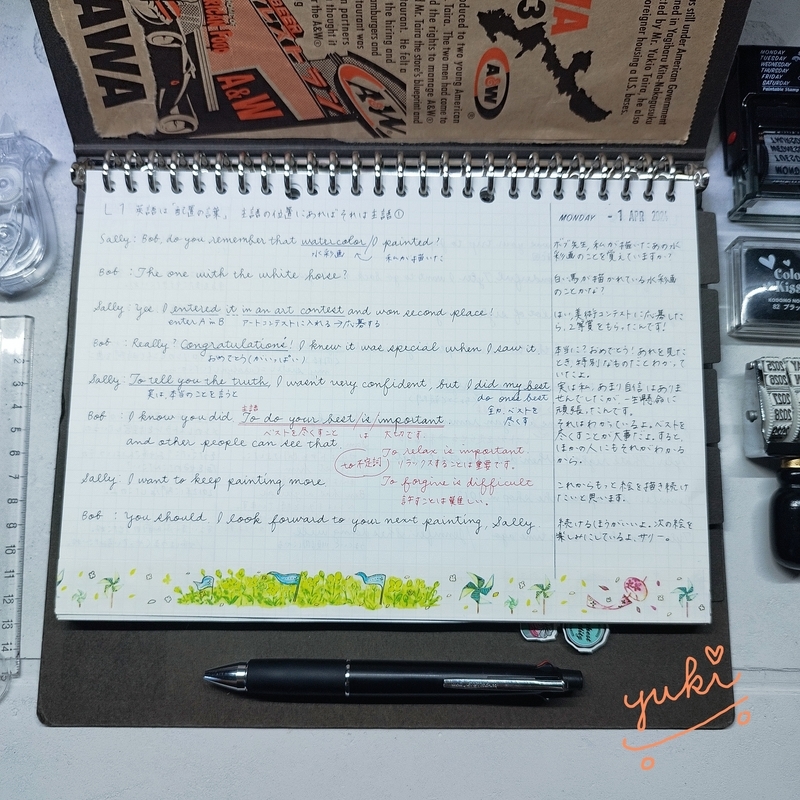 AWA
A&W
A&W
A&W
WA
3
s still under American Government
ned in Yagibaru Kita-Nakagusuku
ted by Mr. Yukio Taira, he also
foreigner housing a U.S. bases.
oduced to two young American
d the rights to manage A&W
Mr. Taira the store's blueprint and
taurant. he felt a
the hiring and
amburgers and
partners
or the A&W
MONDAY
TUESDAY
WEDNESDAY
THURSDAY
FRIDAY
SATURDAY
L1 英語は「配置の言葉」 主語の位置にあればそれは主語①
MONDAY - 1 APR
Sally: Bob, do you remember that watercolor / I painted?
水彩画 私が描いた
Bob : The one with the white horse?
Sally: Yes, I entered it in an art contest and won second place!
enter A in B アートコンテストに入れる→応募する
Bob : Really? Congratulations! I knew it was special when I saw it
おめでとう(かいっぱい)
Sally: To tell you the truth, I wasn't very confident, but I did my best
実は、本当のことを言うと
do one's best
全力、ベストを
尽くす
主語
Bob : I know you did. To do your best/is/important.
ベストを尽くすこと は 大切です.
and other people can see that
to不定詞
To relax is important.
リラックスすることは重要です。
Sally: I want to keep painting more
To forgive is difficult
許すことは難しい。
Bob : You should. I look forward to your next painting, Sally
ボブ先生、私が描いたあの水
彩画のことを覚えていますか?
白い馬が描かれている水彩画
のことかな?
はい、美術コンテストに応募した
ら、2等賞をもらったんです!
本当に?おめでとう!あれを見た
とき、特別なものだとわかって
いたよ。
実は私、あまり自信はありま
せんでしたが、一生懸命に
頑張ったんです。
それはわかっているよ。ベストを
尽くすことが大事だよ。すると、
ほかの人にもそれがわかる
から。
これからもっと絵を描き続け
たいと思います。
続けるほうがいいよ。次の絵を
楽しみにしているよ、サリー。
yuki